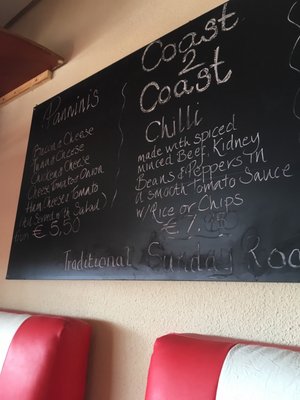 Pannini's
Bacon & Cheese
Tuna & Cheese
Chicken & Cheese
Cheese Tomato & Onion
Ham Cheese & Tomato
(All Served with Salad)
from € 5.50
Coast
2
Coast
Chilli
made with spiced
minced Beef, Kidney
Beans & Peppers in
a smooth Tomato Sauce
w/Rice or Chips
Traditional Sunday Roa